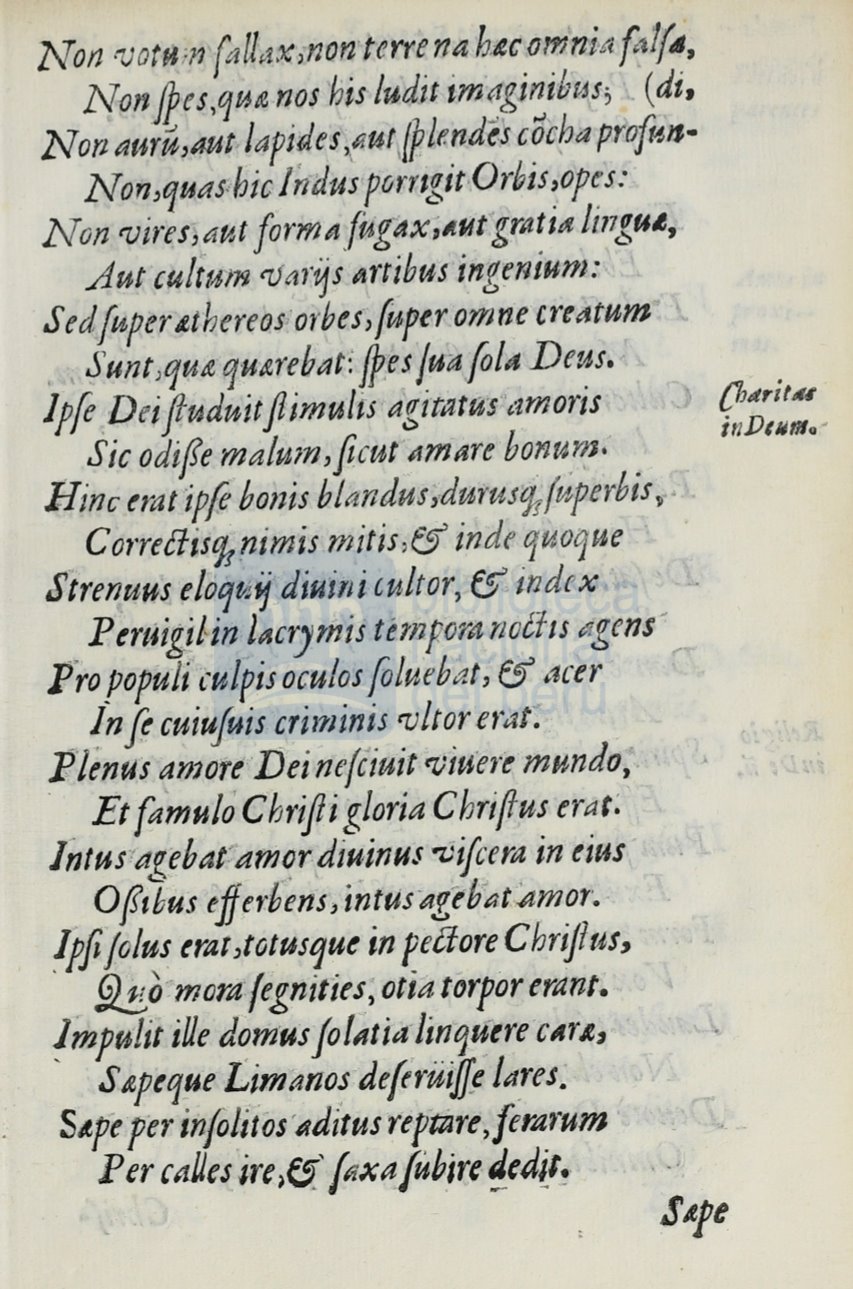 Non votum fallax, non terrena hæc omnia falsa,
Non spes, quæ nos his ludit imaginibus; (di,
Non aurũ, aut lapides, aut splendẽs cõcha profun-
Non, quas hic Indus porrigit Orbis, opes:
Non vires, aut forma fugax, aut gratia linguæ,
Aut cultum varijs artibus ingenium:
Sed super æthereos orbes, super omne creatum
Sunt, quæ quærebat: spes sua sola Deus.
Ipse Dei studuit stimulis agitatus amoris
Charitas
in Deum.
Sic odiße malum, sicut amare bonum.
Hinc erat ipse bonis blandus, durusq; superbis,
Correctisq; nimis mitis, & inde quoque
Strenuus eloquij diuini cultor, & index
Peruigil in lacrymis tempora noctis agens
Pro populi culpis oculos soluebat, & acer
In se cuiusuis criminis vltor erat.
Plenus amore Dei nesciuit viuere mundo,
Et famulo Christi gloria Christus erat.
Intus agebat amor diuinus viscera in eius
Oßibus efferbens, intus agebat amor.
Ipsi solus erat, totusque in pectore Christus,
Quò mora segnities, otia torpor erant.
Impulit ille domus solatia linquere caræ,
Sæpeque Limanos deseruisse lares.
Sæpe per insolitos aditus reptare, ferarum
Per calles ire, & saxa subire dedit.
Sæpe